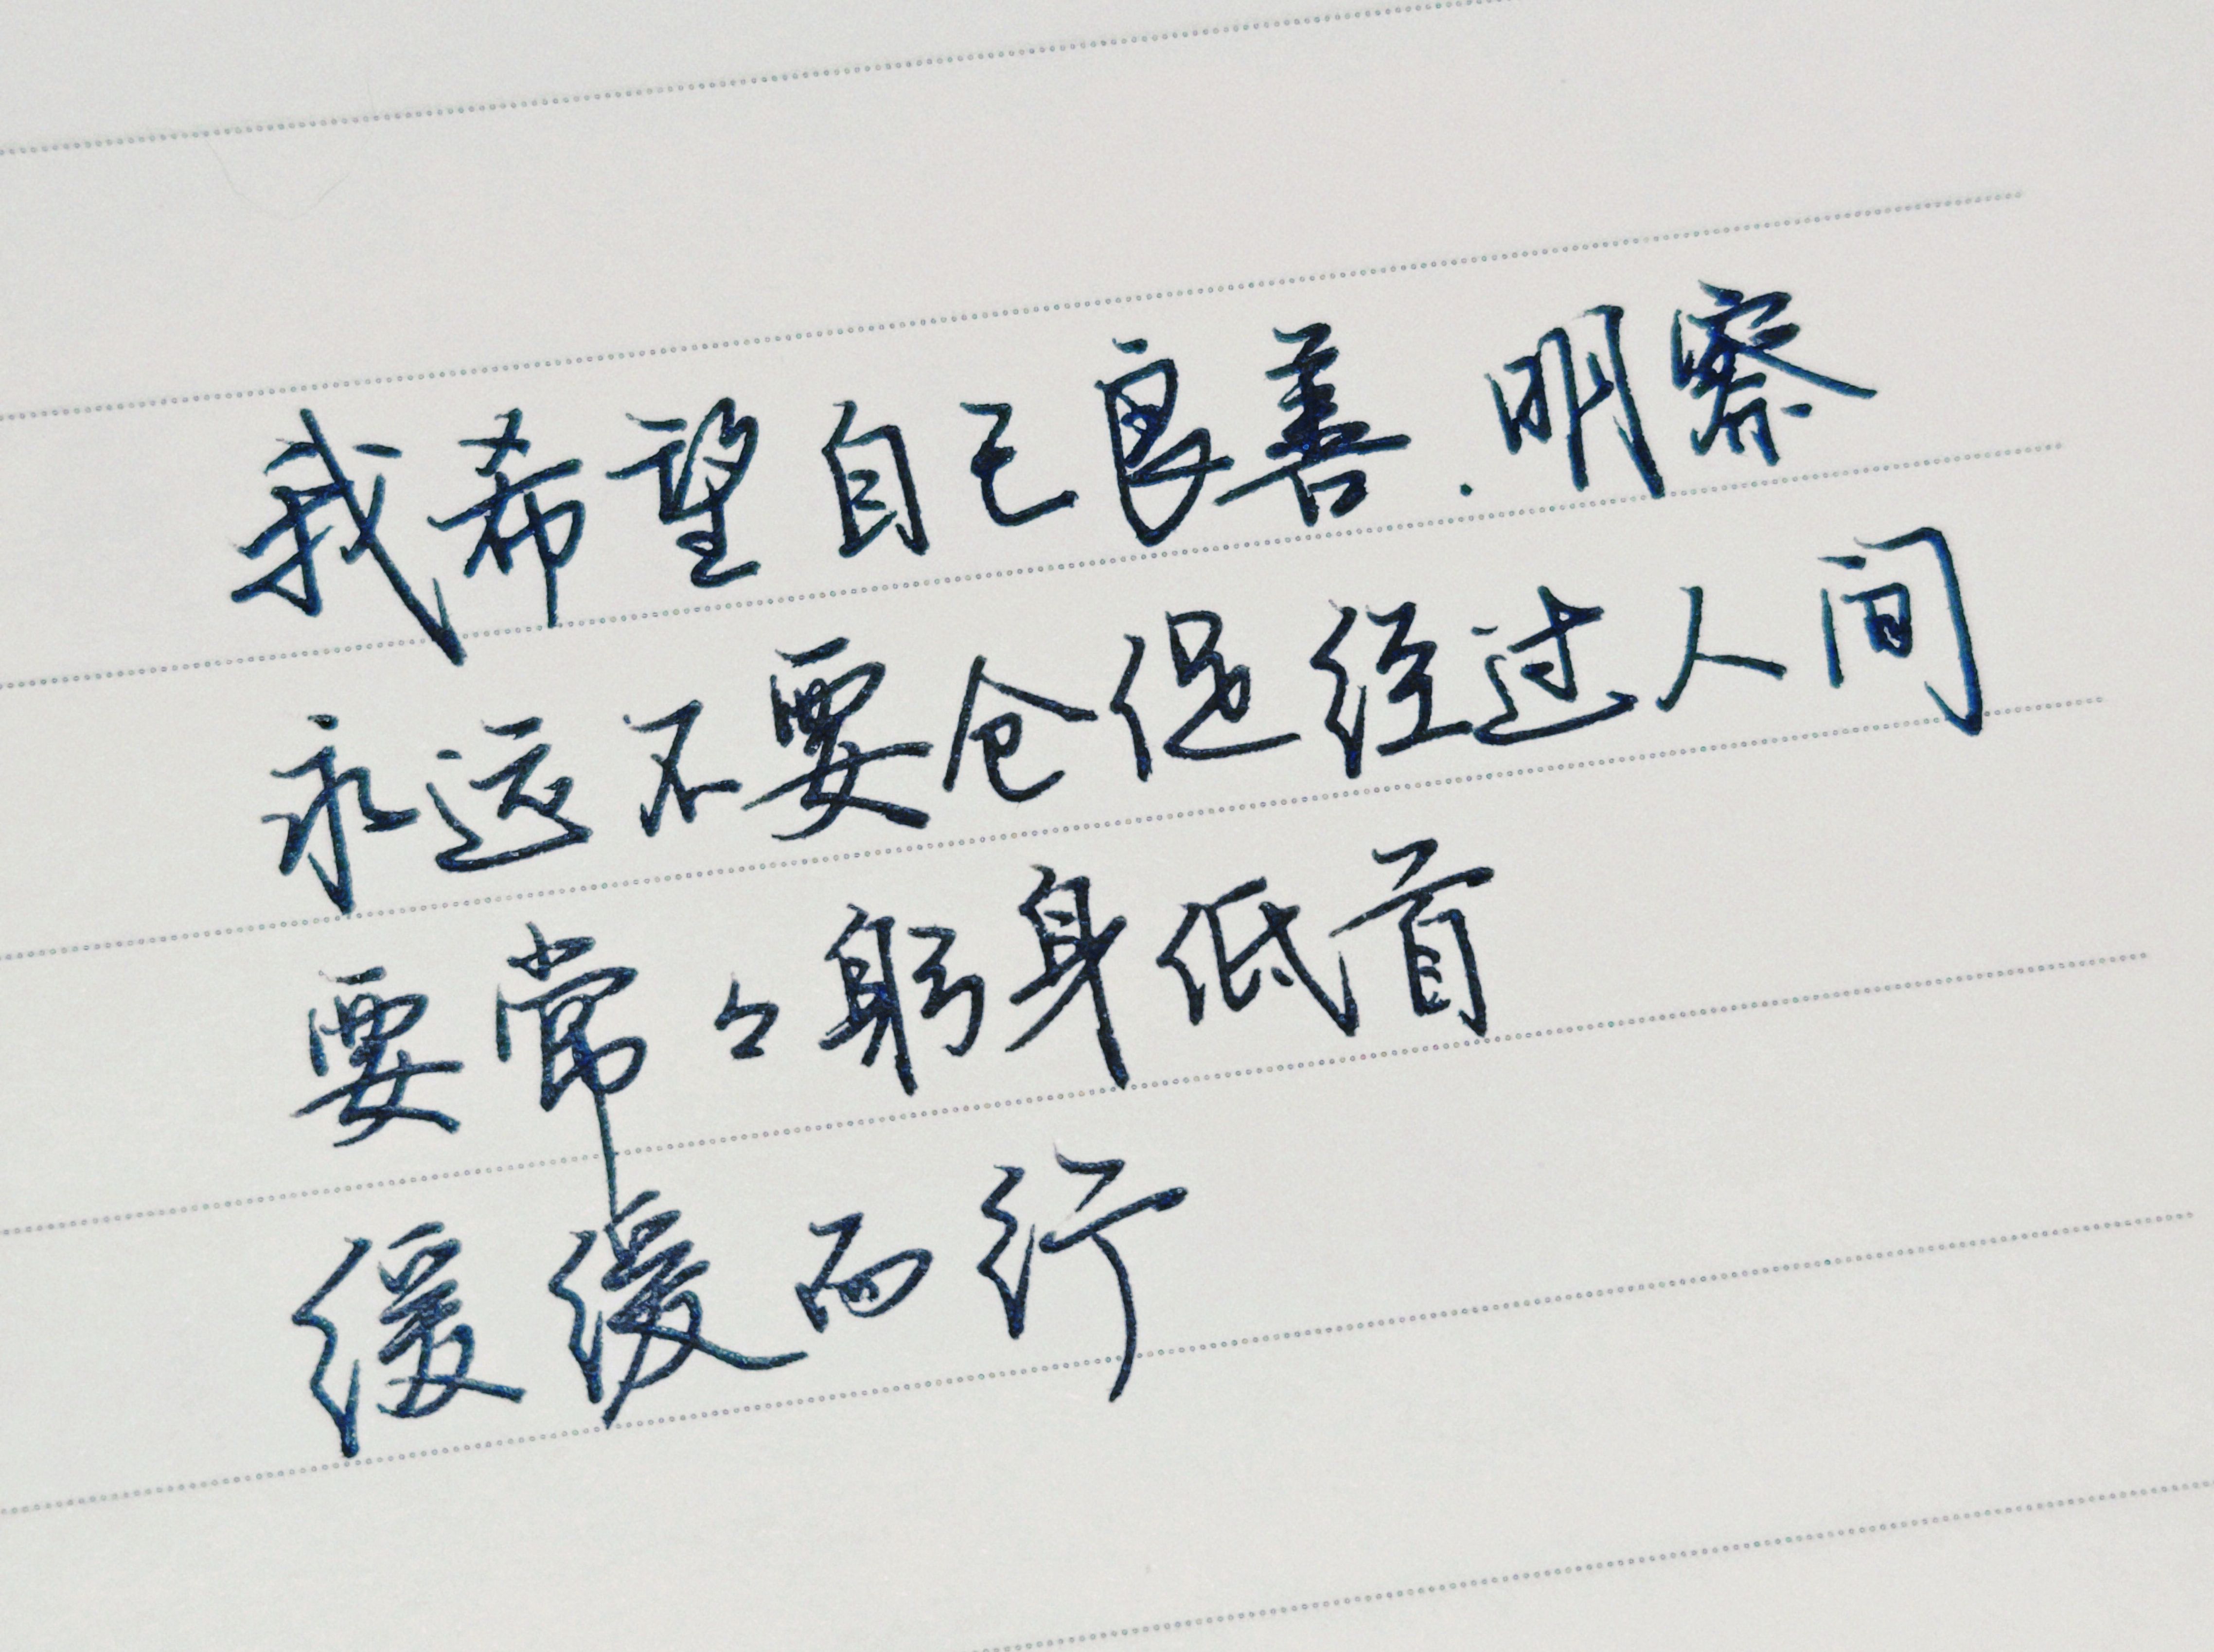 我希望自己良善.明察
永远不要仓促经过人间
要常々躬身低首
缓缓而行